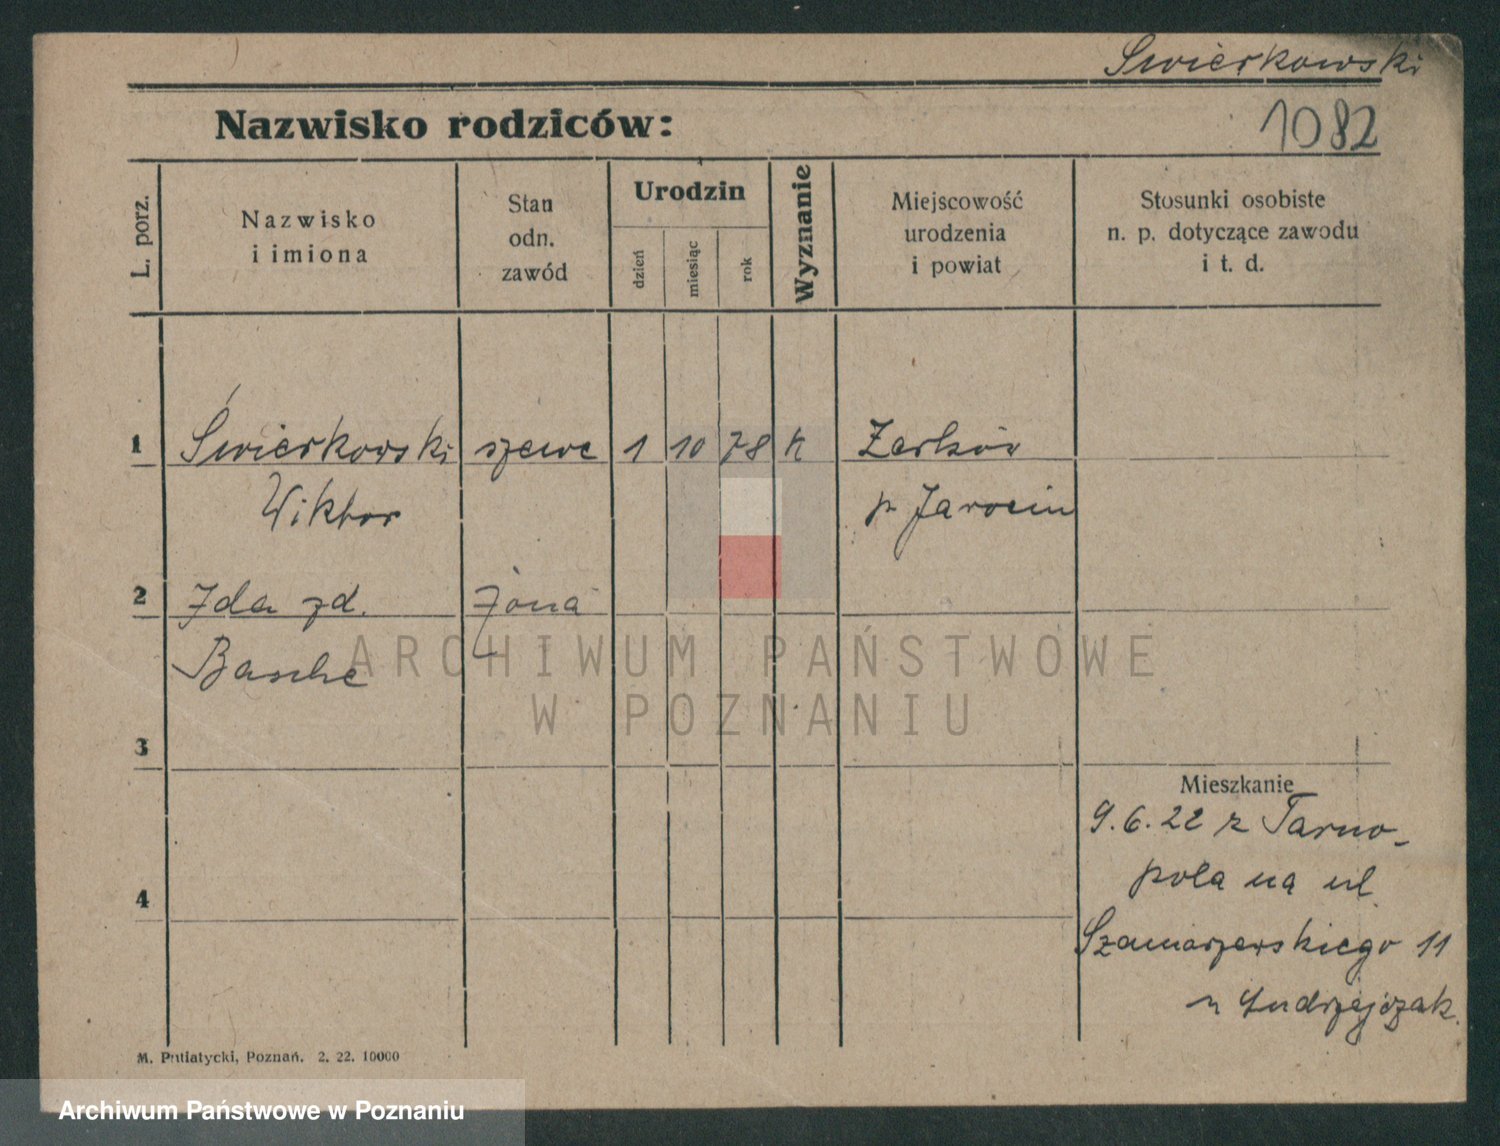 Swierkowski
Nazwisko rodziców:
1082
L. porz.
Nazwisko
i imiona
Stan
odn.
zawód
Urodzin
dzień
miesiąc
rok
Wyznanie
Miejscowość
urodzenia
i powiat
Stosunki osobiste
n. p. dotyczące zawodu
i t. d.
1 Świerkowski szewc 1 10 78 k Zerków
Wiktor p Jarocin
2 Ida zd. żona
Basche
ARCHIWUM PAŃSTWOWE
W POZNANIU
3
Mieszkanie
9.6.22 z Tarno-
pola na ul.
4
Szamarzewskiego 11
u Andrzejczak.
M. Putiatycki, Poznań. 2. 22. 10000
Archiwum Państwowe w Poznaniu